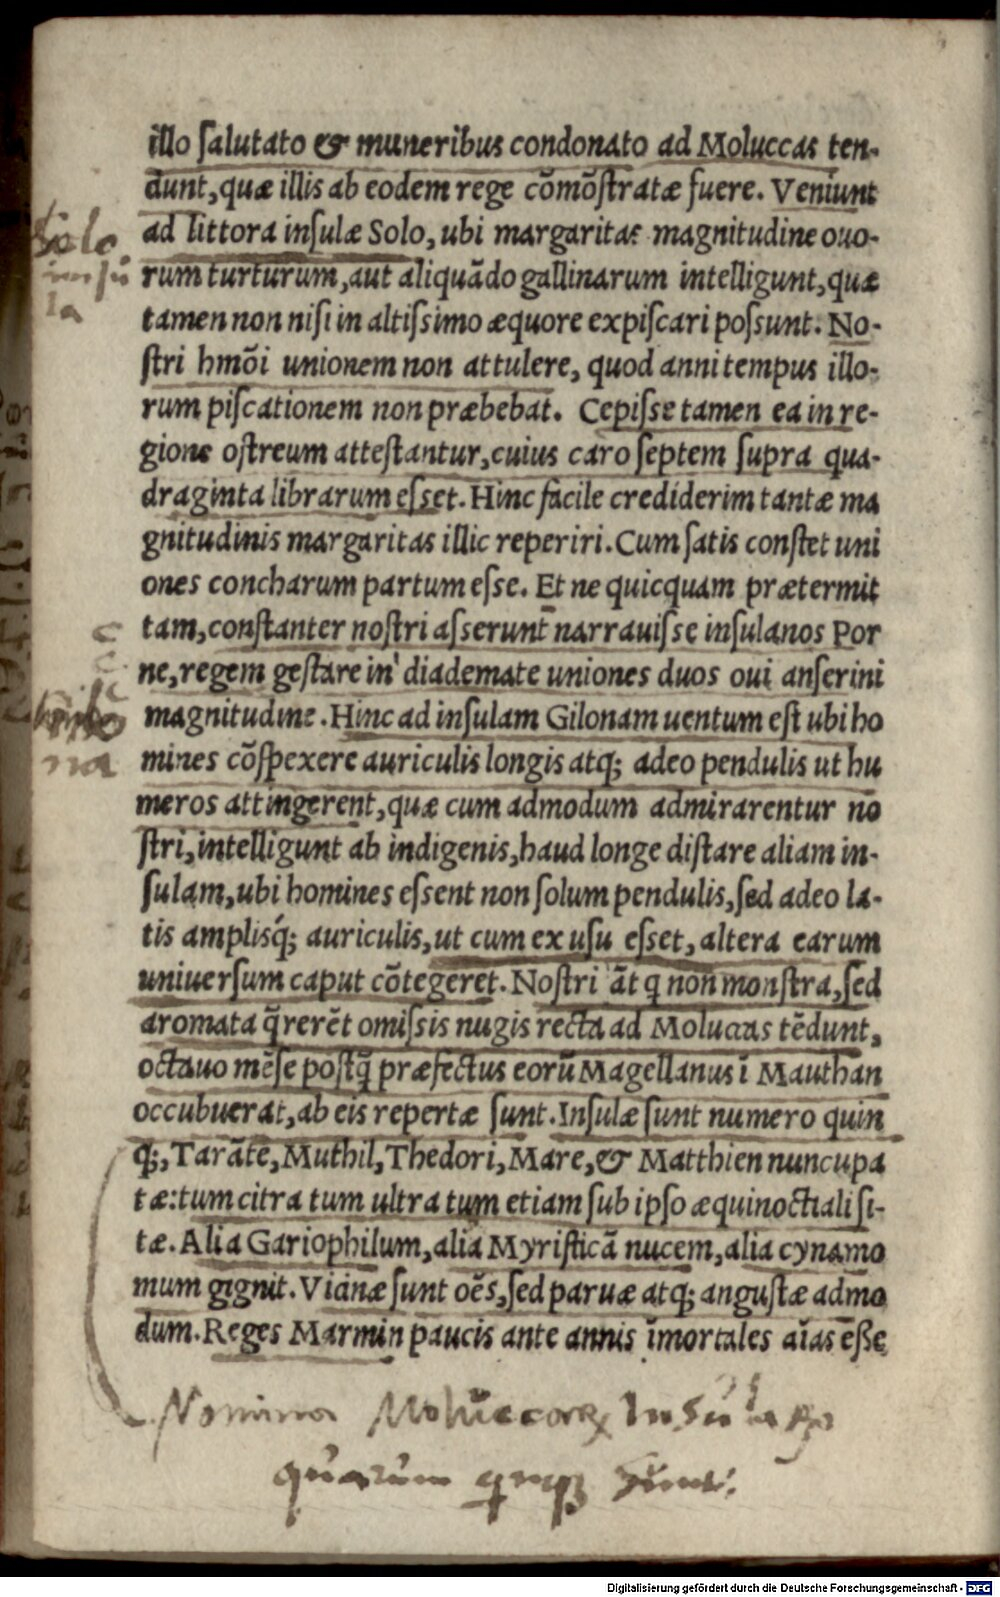 illo ſalutato & muneribus condonato ad Moluccas ten-
dunt, quæ illis ab eodem rege cõmõſtratæ fuere. Veniunt
ad littora inſulæ Solo, ubi margaritas magnitudine ouo-
rum turturum, aut aliquãdo gallinarum intelligunt, quæ
tamen non niſi in altiſsimo æquore expiſcari poſsunt. No-
ſtri hmõi unionem non attulere, quod anni tempus illo-
rum piſcationem non præbebat. Cepiſse tamen ea in re-
gione oſtreum atteſtantur, cuius caro ſeptem ſupra qua-
draginta librarum eſset. Hinc facile crediderim tantæ ma
gnitudinis margaritas illic reperiri. Cum ſatis conſtet uni
ones concharum partum eſse. Et ne quicquam prætermit
tam, conſtanter noſtri aſserunt narrauiſse inſulanos Por
ne, regem geſtare in diademate uniones duos oui anſerini
magnitudine. Hinc ad inſulam Gilonam uentum eſt ubi ho
mines cõſpexere auriculis longis atq; adeo pendulis ut hu
meros attingerent, quæ cum admodum admirarentur no
ſtri, intelligunt ab indigenis, haud longe diſtare aliam in-
ſulam, ubi homines eſsent non ſolum pendulis, ſed adeo la-
tis amplisq́; auriculis, ut cum ex uſu eſset, altera earum
uniuerſum caput cõtegeret. Noſtri ãt q non monſtra, ſed
aromata q̃rerẽt omiſsis nugis recta ad Moluccas tẽdunt,
octauo mẽſe poſtq̃ præfectus eorũ Magellanus ĩ Mauthan
occubuerat, ab eis repertæ ſunt. Inſulæ ſunt numero quin
q;, Tarãte, Muthil, Thedori, Mare, & Matthien nuncupa
tæ: tum citra tum ultra tum etiam ſub ipſo æquinoctiali ſi-
tæ. Alia Gariophilum, alia Myriſticã nucem, alia cynamo
mum gignit. Vicinæ ſunt oẽs, ſed paruæ atq; anguſtæ admo
dum. Reges Marmin paucis ante annis ĩmortales aĩas eſse
Solo
inſu
la
na
Nomina Moluccarꝝ Inſularꝝ
quarum qnqꝫ Sunt:
Digitalisierung gefördert durch die Deutsche Forschungsgemeinschaft - DFG